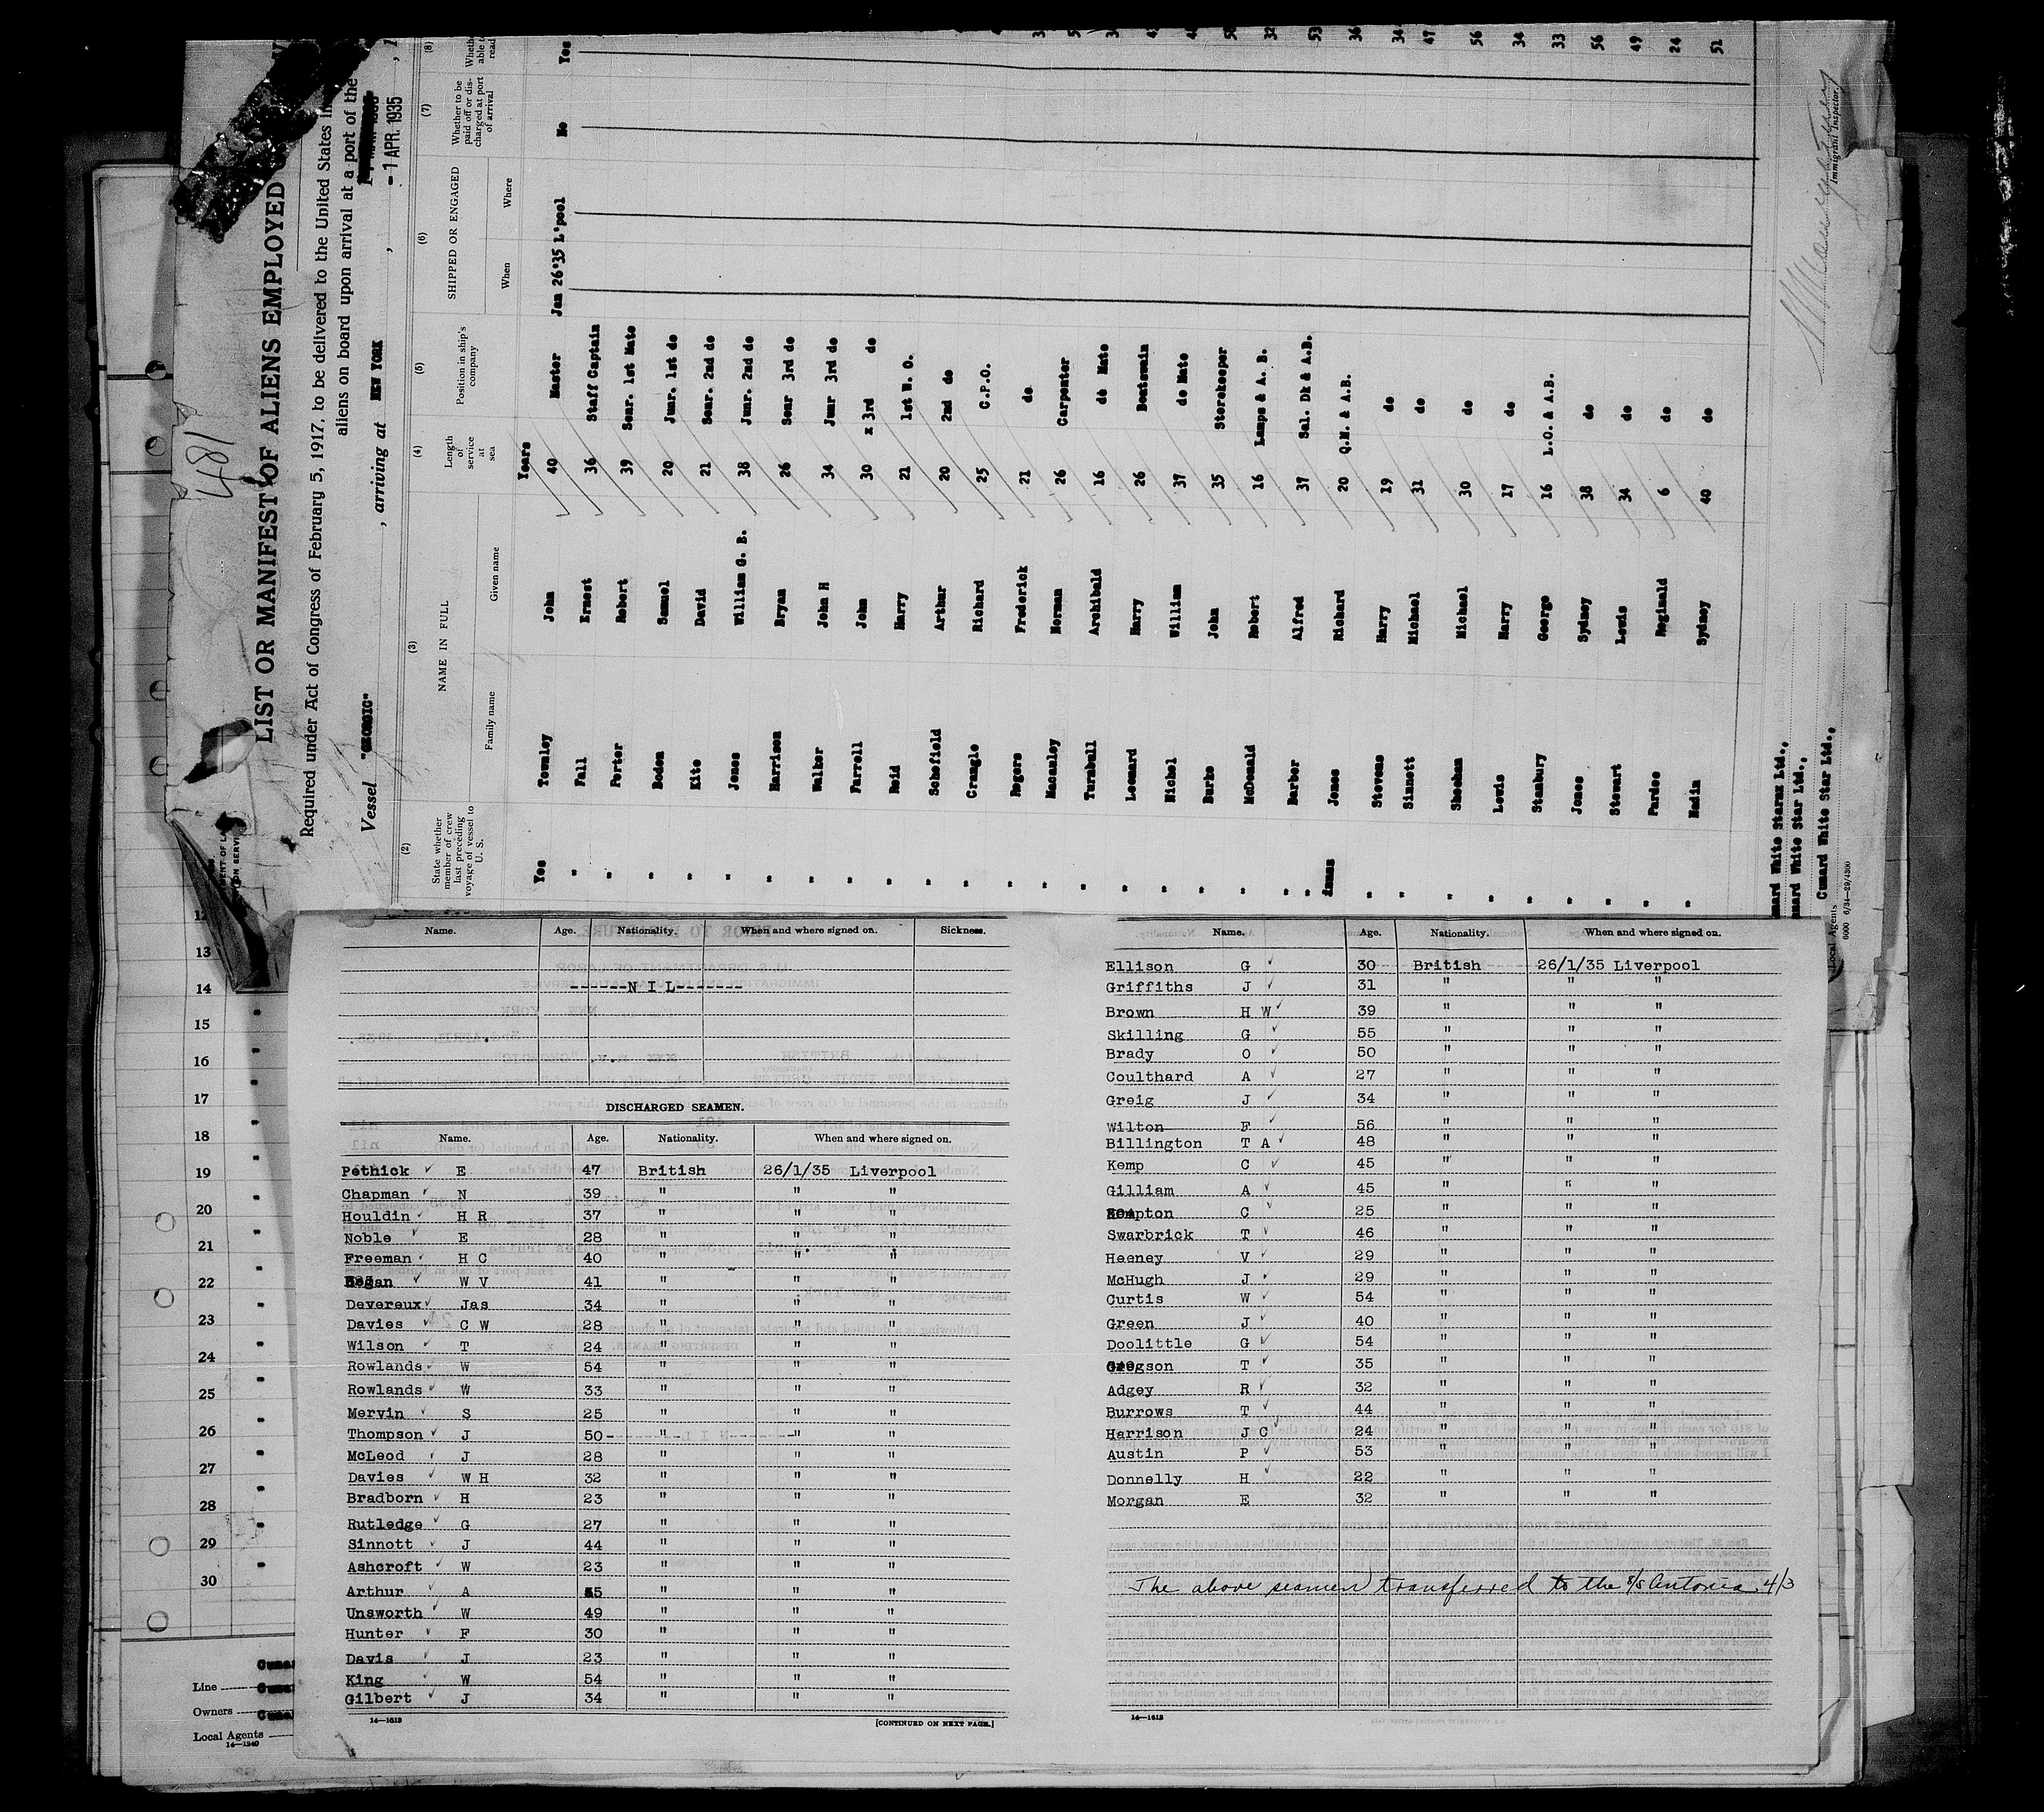 481
LIST OR MANIFEST OF ALIENS EMPLOYED
Required under Act of Congress of February 5, 1917, to be delivered to the United States
aliens on board upon arrival at a port of the
Vessel "GEORGIC", arriving at NEW YORK, - 1 APR. 1935
(2) (3) (4) (5) (6) (7) (8)
State whether member of crew last preceding voyage of vessel to U. S.
NAME IN FULL
Family name Given name
Length of service at sea
Position in ship's company
SHIPPED OR ENGAGED
When Where
Whether to be paid off or discharged at port of arrival
Years
Yes Townley John 40 Master Jan 26'35 L'pool No Yes
" Fall Ernest 36 Staff Captain
" Porter Robert 39 Senr. 1st Mate
" Boden Samuel 20 Junr. 1st do
" Kite David 21 Senr. 2nd do
" Jones William G. B. 38 Junr. 2nd do
" Harrison Bryan 26 Senr 3rd do
" Walker John H 34 Junr 3rd do
" Farrell John 30 x 3rd do
" Reid Harry 21 1st W. O.
" Schofield Arthur 20 2nd do
" Crangle Richard 25 C.P.O.
" Rogers Frederick 21 do
" Macauley Norman 26 Carpenter
" Turnbull Archibald 16 do Mate
" Leonard Harry 26 Boatswain
" Michel William 37 do Mate
" Burke John 35 Storekeeper
" McDonald Robert 16 Lamps & A. B.
" Barber Alfred 37 Sal. Dk & A.B.
" Jones Richard 20 Q.M. & A.B.
" Stevens Harry 19 do
" Sinnott Michael 31 do
" Sheehan Michael 30 do
" Lewis Harry 17 do
" Stanbury George 16 L.O. & A.B.
" Jones Sydney 38 do
" Stewart Lewis 34 do
" Pardoe Reginald 6 do
" Madin Sydney 40 do
53 36 34 47 56 34 33 56 49 24 51
Cunard White Star Ltd.,
Local Agents
6000 6/34—29/4300
Immigrant Inspector.
12
13
14
15
16
17
18
19
20
21
22
23
24
25
26
27
28
29
30
Line
Owners
Local Agents
14—1240
Name. Age. Nationality. When and where signed on. Sickness.
------N I L-------
DISCHARGED SEAMEN.
Name. Age. Nationality. When and where signed on.
Pethick E 47 British 26/1/35 Liverpool
Chapman N 39 " " "
Houldin H R 37 " " "
Noble E 28 " " "
Freeman H C 40 " " "
Regan W V 41 " " "
Devereux Jas 34 " " "
Davies C W 28 " " "
Wilson T 24 " " "
Rowlands W 54 " " "
Rowlands W 33 " " "
Mervin S 25 " " "
Thompson J 50 " " "
McLeod J 28 " " "
Davies W H 32 " " "
Bradborn H 23 " " "
Rutledge G 27 " " "
Sinnott J 44 " " "
Ashcroft W 23 " " "
Arthur A 35 " " "
Unsworth W 49 " " "
Hunter F 30 " " "
Davis J 23 " " "
King W 54 " " "
Gilbert J 34 " " "
14—1613 [CONTINUED ON NEXT PAGE.]
Name. Age. Nationality. When and where signed on.
Ellison G 30 British 26/1/35 Liverpool
Griffiths J 31 " " "
Brown H W 39 " " "
Skilling G 55 " " "
Brady O 50 " " "
Coulthard A 27 " " "
Greig J 34 " " "
Wilton F 56 " " "
Billington T A 48 " " "
Kemp C 45 " " "
Gilliam A 45 " " "
Kempton C 25 " " "
Swarbrick T 46 " " "
Heeney V 29 " " "
McHugh J 29 " " "
Curtis W 54 " " "
Green J 40 " " "
Doolittle G 54 " " "
Gregson T 35 " " "
Adgey R 32 " " "
Burrows T 44 " " "
Harrison J C 24 " " "
Austin P 53 " " "
Donnelly H 22 " " "
Morgan E 32 " " "
The above seamen transferred to the S/S Antonia 4/3
14—1613